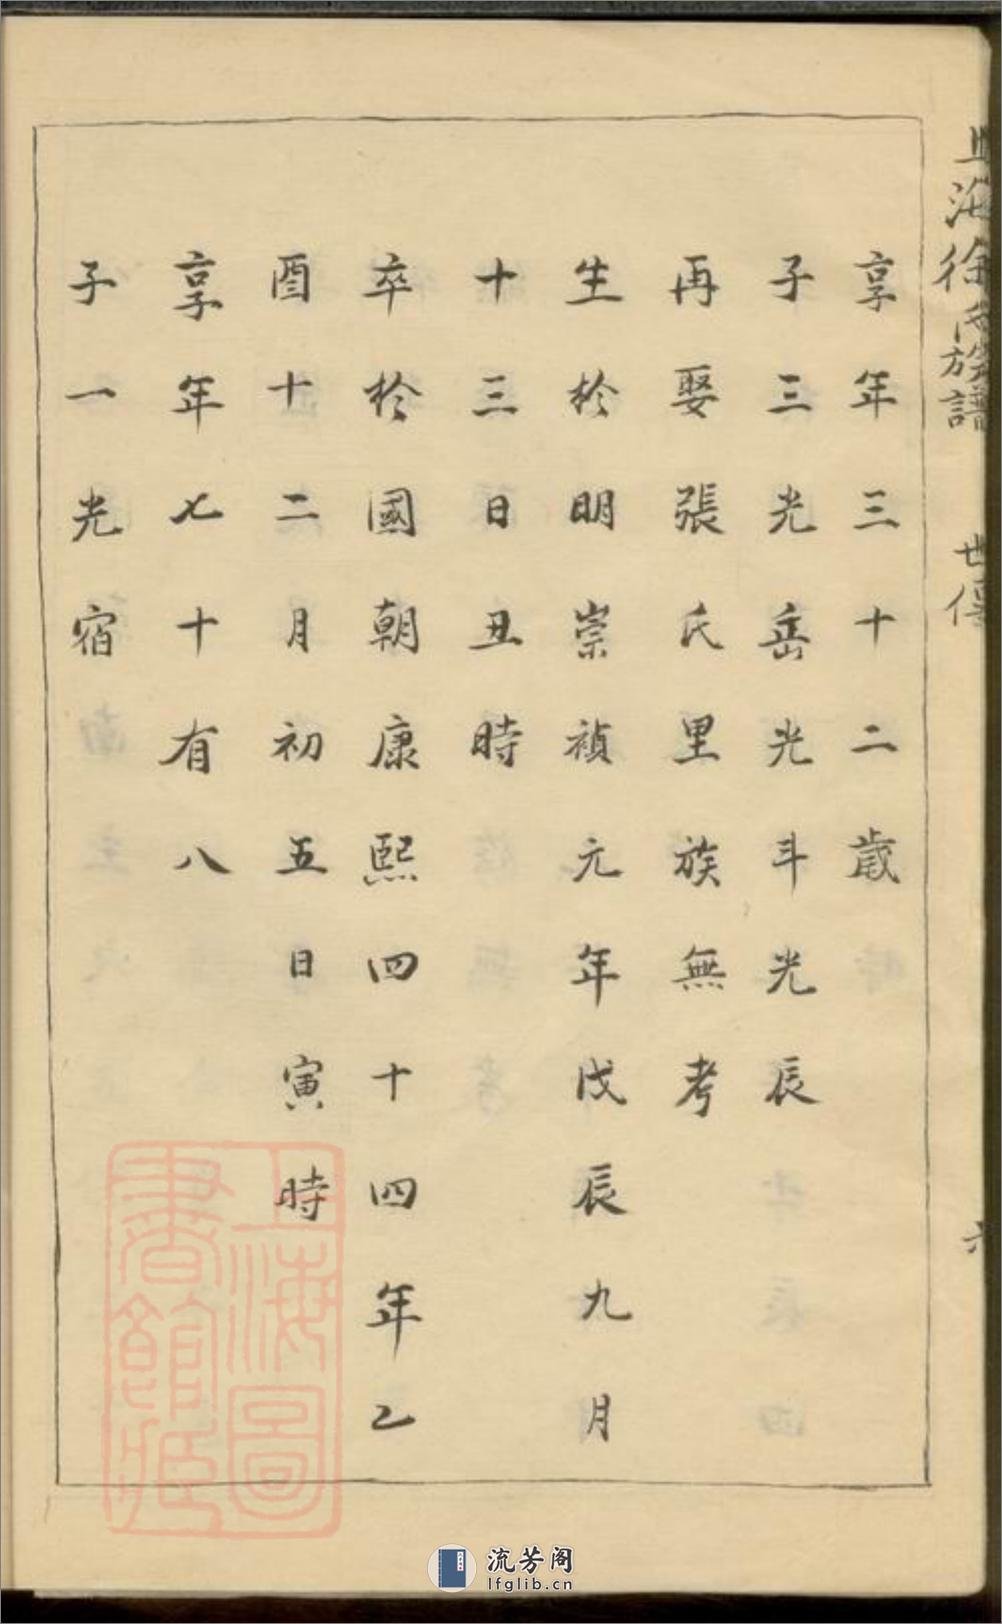 上海徐氏族譜
世傳
六
享年三十二歲
子三光岳光斗光辰
再娶張氏里族無考
生於明崇禎元年戊辰九月
十三日丑時
卒於國朝康熙四十四年乙
酉十二月初五日寅時
享年七十有八
子一光宿
上海圖書館藏
流芳阁
lfglib.cn